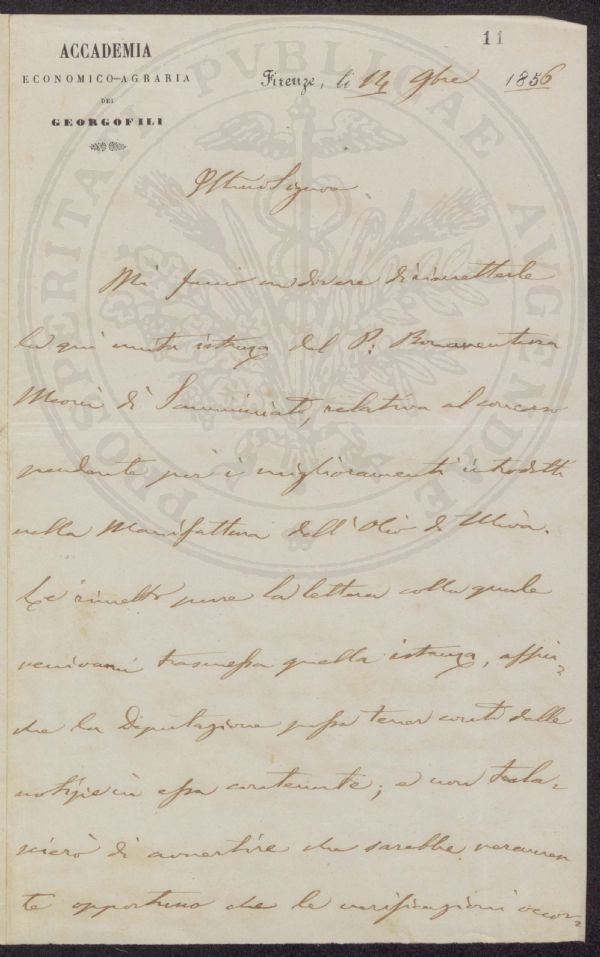 11
ACCADEMIA
ECONOMICO-AGRARIA
DEI
GEORGOFILI
Firenze, li 14 9bre 1856
PROSPERITATI PUBLICAE AUGENDAE
Mi fo un dovere di rimetterle
la qui unita istanza del P. Bonaventura
di Samminiato, relativa al concorso
pendente per i miglioramenti introdotti
nella Manifattura dell'Olio di Uliva.
Le rimetto pure la lettera colla quale
venivami trasmessa quella istanza, affin-
che la Deputazione possa tener conto delle
notizie in essa contenute; e non trala-
scierò di avvertire che sarebbe veramen
te opportuno che le verificazioni occor-